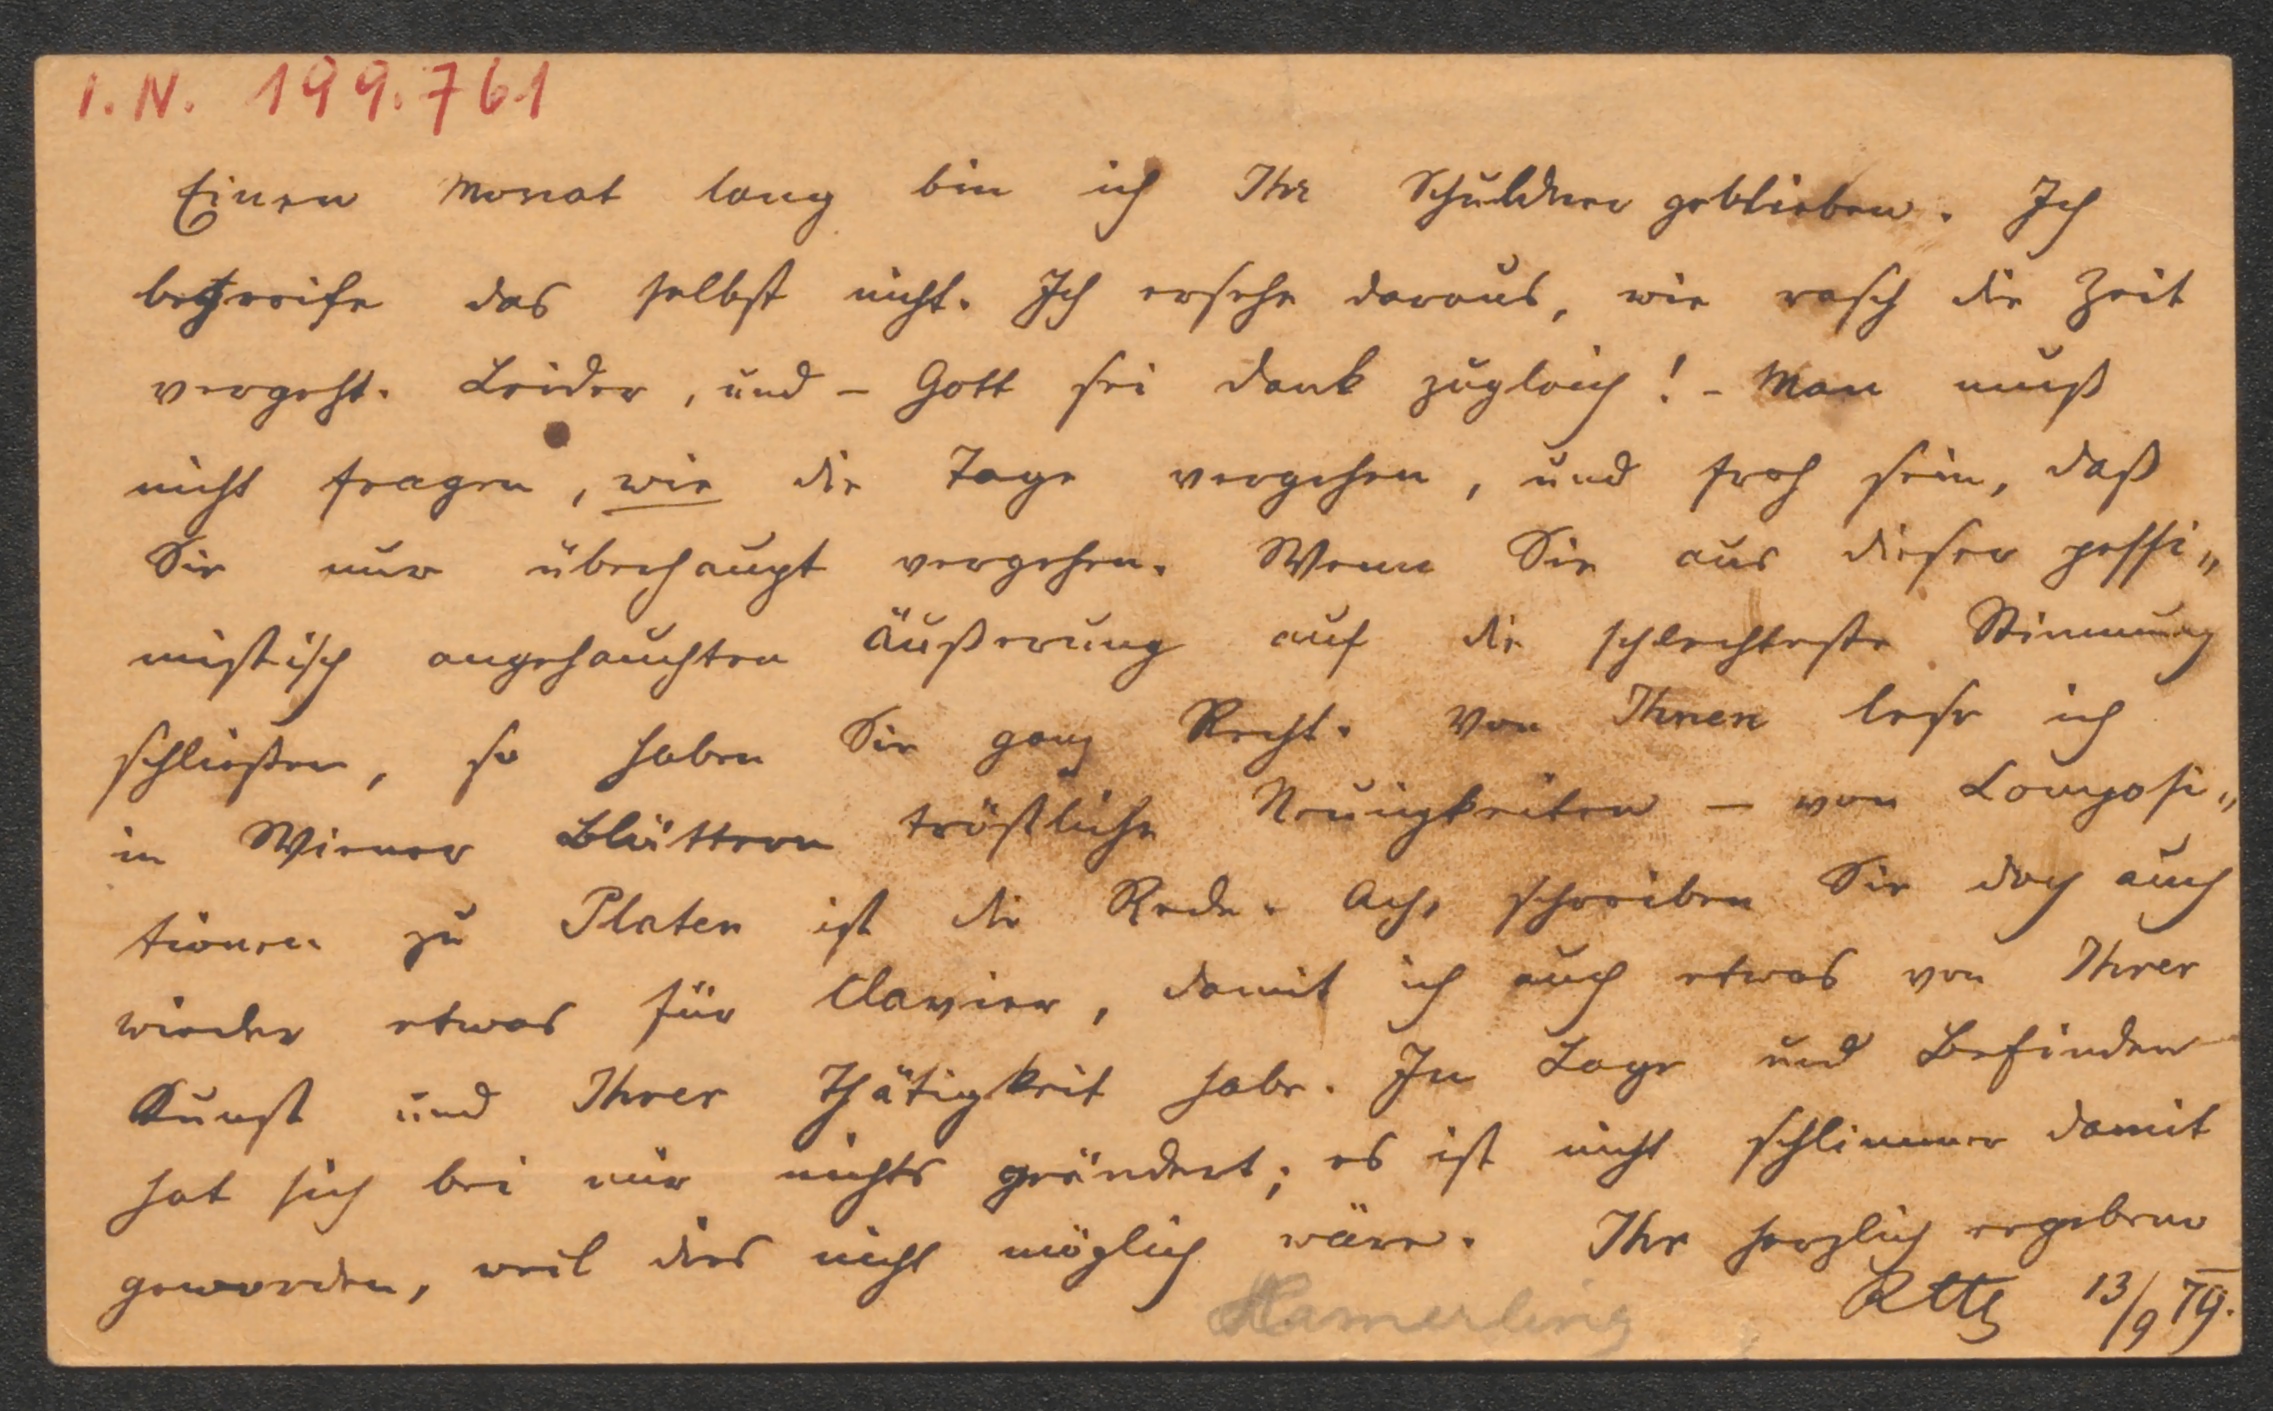 I. N. 199.761
Einen Monat lang bin ich Ihr Schuldner geblieben. Ich
begreife das selbst nicht. Ich ersehe daraus, wie rasch die Zeit
vergeht. Leider, und – Gott sei Dank zugleich! – Man muß
nicht fragen, wie die Tage vergehen, und froh sein, daß
Sie nur überhaupt vergehen. Wenn Sie aus dieser pessi„
mistisch angehauchten Äußerung auf die schlechteste Stimmung
schließen, so haben Sie ganz Recht. Von Ihnen lese ich
in Wiener Blättern tröstliche Neuigkeiten – von Composi„
tionen zu Platen ist die Rede. Ach, schreiben Sie doch auch
wieder etwas für Clavier, damit ich auch etwas von Ihrer
Kunst und Ihrer Thätigkeit habe. In Lage und Befinden
hat sich bei mir nichts geändert; es ist nicht schlimmer damit
geworden, weil dies nicht möglich wäre. Ihr herzlich ergebener
13/9 79.
Hamerling